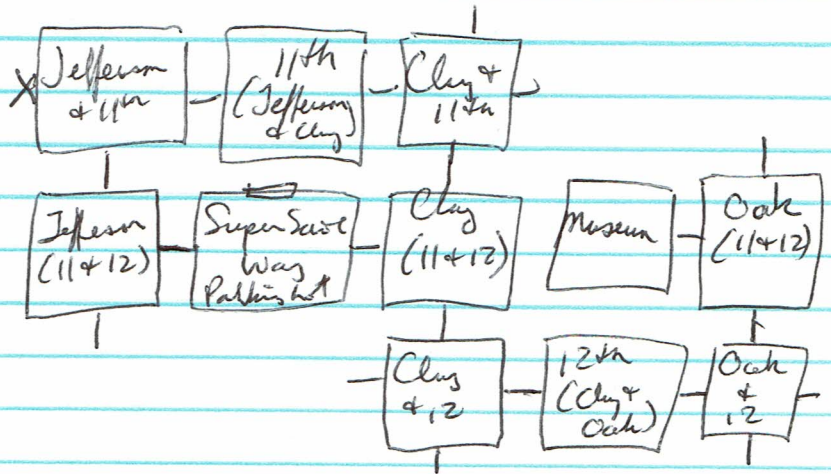 X Jefferson
& 11th
11th
(Jefferson
& Clay)
Clay &
11th
Jefferson
(11 & 12)
SuperSave
Way
Parking Lot
Clay
(11 & 12)
Museum
Oak
(11 & 12)
Clay
& 12
12th
(Clay &
Oak)
Oak
&
12